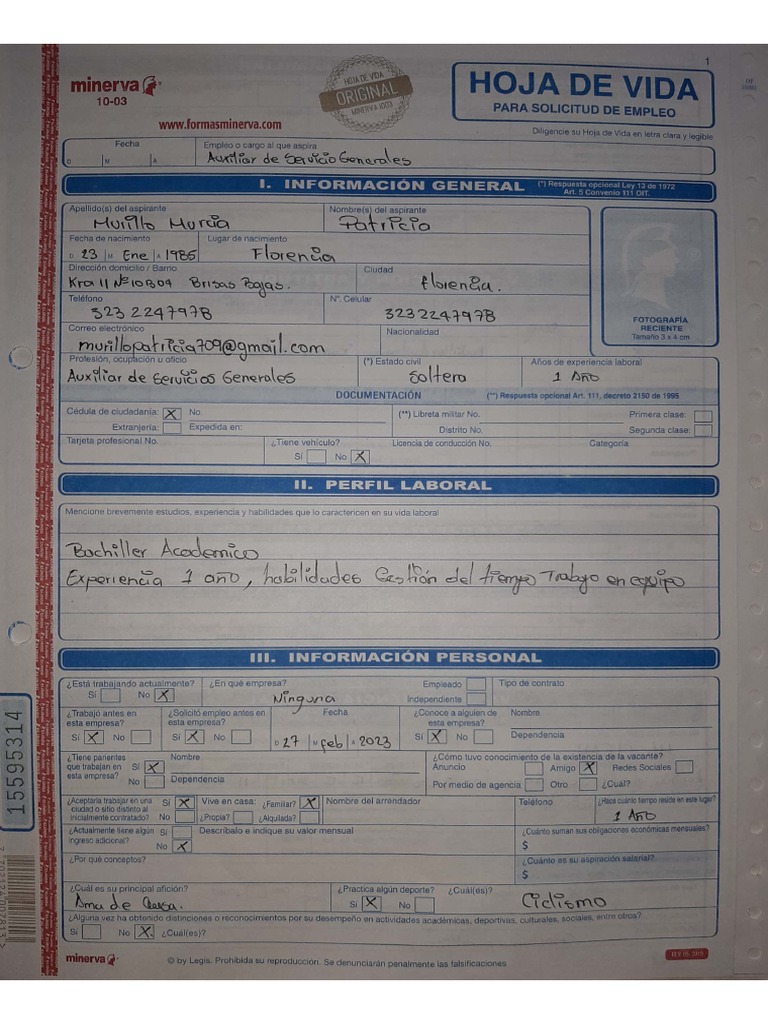 1
minerva
10-03
www.formasminerva.com
HOJA DE VIDA
ORIGINAL
MINERVA 1003
HOJA DE VIDA
PARA SOLICITUD DE EMPLEO
Diligencie su Hoja de Vida en letra clara y legible
Fecha
D M A
Empleo o cargo al que aspira
Auxiliar de Servicio Generales
I. INFORMACIÓN GENERAL (*) Respuesta opcional Ley 13 de 1972
Art. 5 Convenio 111 OIT.
Apellido(s) del aspirante Nombre(s) del aspirante
Murillo Murcia Patricia
Fecha de nacimiento Lugar de nacimiento
D 23 M Ene A 1985 Florencia
Dirección domicilio / Barrio Ciudad
Kra 11 Nº 10B04 Brisas Bajas. florencia.
Teléfono Nº. Celular
323 2247978 3232247978
FOTOGRAFÍA
RECIENTE
Tamaño 3 x 4 cm
Correo electrónico Nacionalidad
murillopatricia709@gmail.com
Profesión, ocupación u oficio (*) Estado civil Años de experiencia laboral
Auxiliar de Servicios Generales Soltera 1 Año
DOCUMENTACIÓN (**) Respuesta opcional Art. 111, decreto 2150 de 1995
Cédula de ciudadanía: X No. (**) Libreta militar No. Primera clase:
Extranjería: Expedida en: Distrito No. Segunda clase:
Tarjeta profesional No. ¿Tiene vehículo? Licencia de conducción No. Categoría
Sí No X
II. PERFIL LABORAL
Mencione brevemente estudios, experiencia y habilidades que lo caractericen en su vida laboral
Bachiller Academico
Experiencia 1 año, habilidades Gestión del tiempo Trabajo en equipo
III. INFORMACIÓN PERSONAL
¿Está trabajando actualmente? ¿En qué empresa? Empleado Tipo de contrato
Sí No X Ninguna Independiente
¿Trabajó antes en esta empresa? ¿Solicitó empleo antes en esta empresa? Fecha ¿Conoce a alguien de esta empresa? Nombre
Sí X No Sí X No D 27 M feb A 2023 Sí X No Dependencia
¿Tiene parientes que trabajan en esta empresa? Sí X No Nombre
Dependencia
¿Cómo tuvo conocimiento de la existencia de la vacante?
Anuncio Amigo X Redes Sociales
Por medio de agencia Otro ¿Cuál?
¿Aceptaría trabajar en una ciudad o sitio distinto al inicialmente contratado? Sí X No
Vive en casa: ¿Familiar? X ¿Propia? ¿Alquilada?
Nombre del arrendador Teléfono ¿Hace cuánto tiempo reside en este lugar?
1 Año
¿Actualmente tiene algún ingreso adicional? Sí No X
Descríbalo e indique su valor mensual
¿Cuánto suman sus obligaciones económicas mensuales?
$
¿Por qué conceptos? ¿Cuánto es su aspiración salarial?
$
¿Cuál es su principal afición? ¿Practica algún deporte? ¿Cuál(es)?
Ama de Casa. Sí X No Ciclismo
¿Alguna vez ha obtenido distinciones o reconocimientos por su desempeño en actividades académicas, deportivas, culturales, sociales, entre otros?
Sí No X ¿Cuál(es)?
minerva
© by Legis. Prohibida su reproducción. Se denunciarán penalmente las falsificaciones
15595314